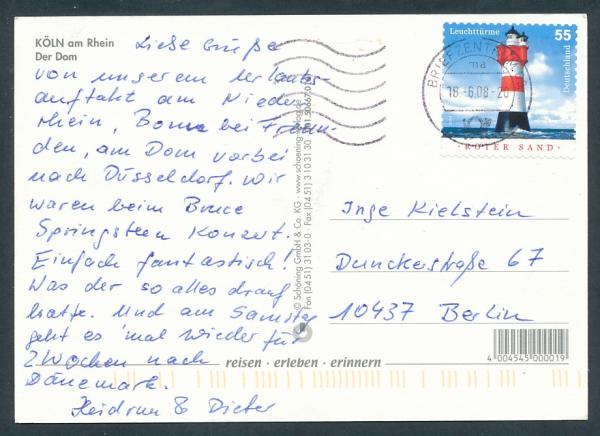 KÖLN am Rhein
Der Dom
Liebe Grüße
von unserem Urlaubs-
auftakt am Nieder
rhein, Bonn bei Freun-
den, am Dom vorbei
nach Düsseldorf. Wir
waren beim Bruce
Springsteen Konzert.
Einfach fantastisch!
Was der so alles drauf
hatte. Und am Samstag
geht es 'mal wieder für
2 Wochen nach
Dänemark.
Heidrun & Dieter
© Schöning GmbH & Co. KG · www.schoening-verlag.de
Fon (04 51) 3 10 3-0 · Fax (04 51) 3 10 31 30
Leuchttürme 55
Deutschland
ROTER SAND
BRIEFZENTRUM
18.-6.08-20
Inge Kielstein
Dunckerstraße 67
10437 Berlin
4 004545 000019
reisen · erleben · erinnern